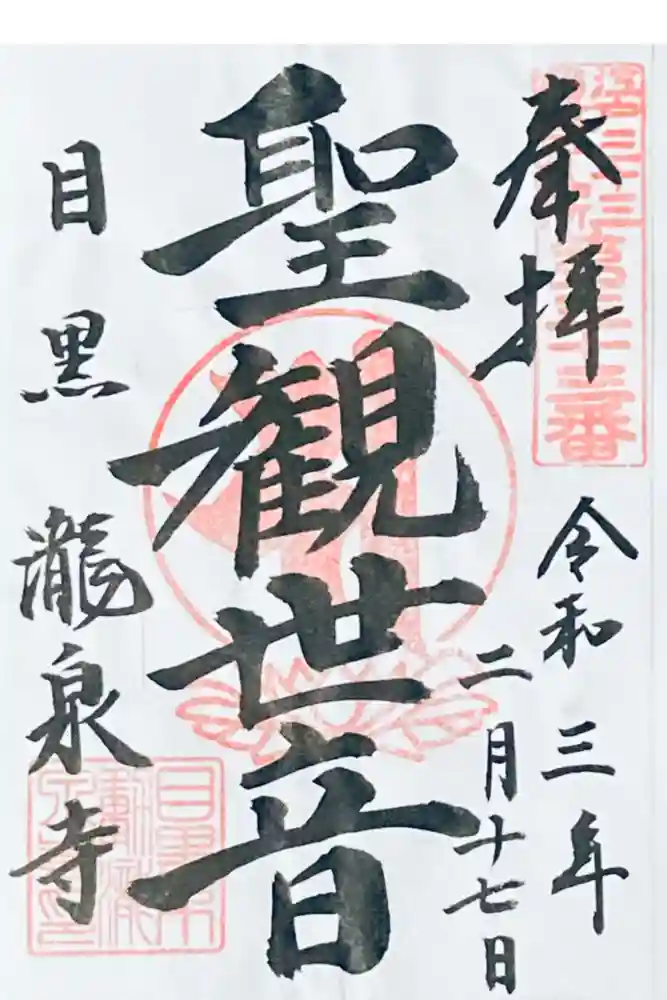 奉拝
令和三年
二月十七日
聖観世音
目黒瀧泉寺